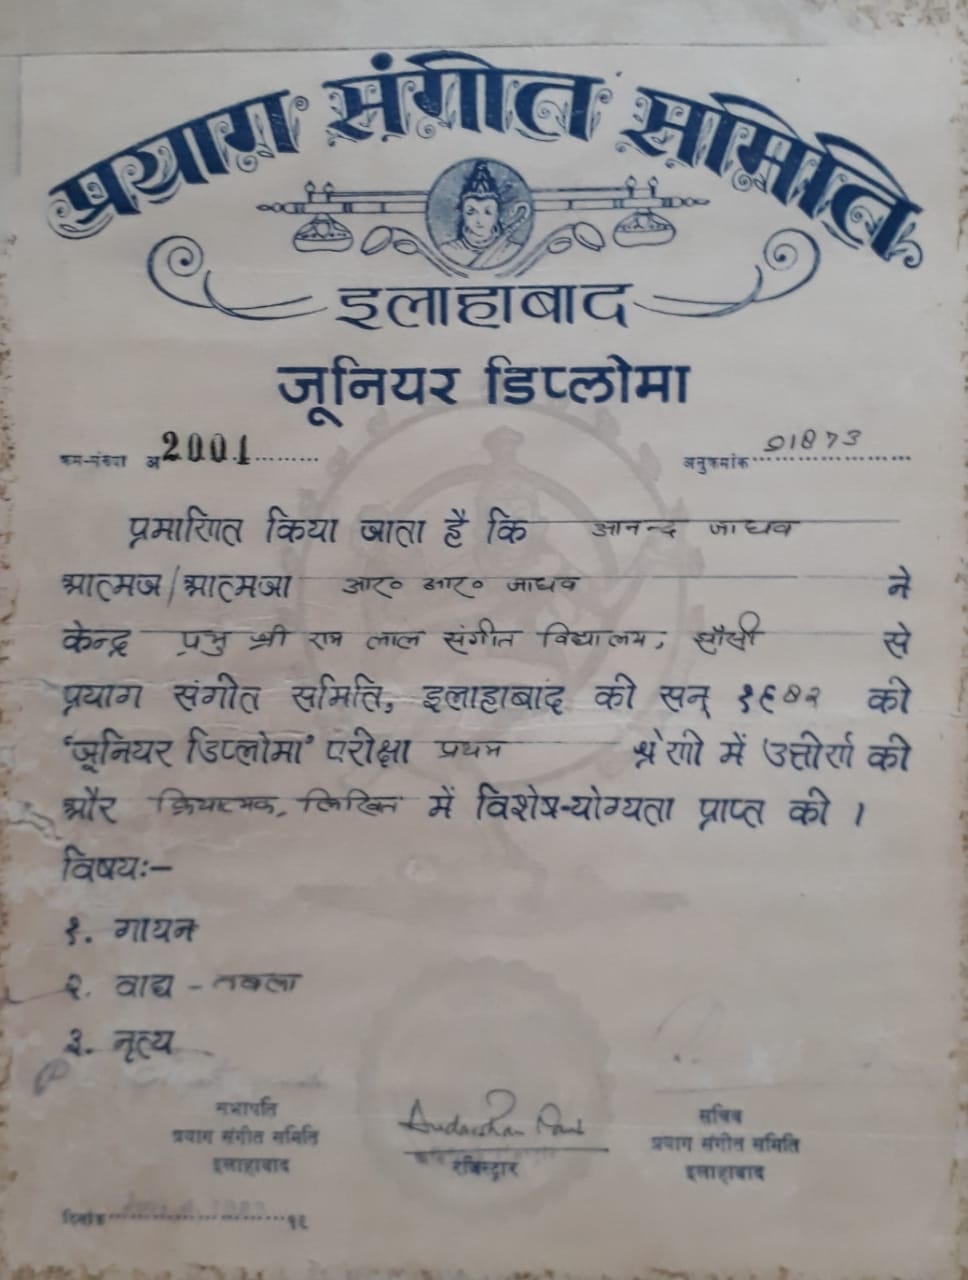 प्रयाग संगीत समिति
इलाहाबाद
जूनियर डिप्लोमा
क्रम-संख्या अ 2001
अनुक्रमांक 91873
प्रमाणित किया जाता है कि आनन्द जाधव
आत्मज/आत्मजा आर० आर० जाधव ने
केन्द्र प्रभु श्री राम लाल संगीत विद्यालय, झाँसी से
प्रयाग संगीत समिति, इलाहाबाद की सन् की
'जूनियर डिप्लोमा' परीक्षा प्रथम श्रेणी में उत्तीर्ण की
और क्रियात्मक, लिखित में विशेष-योग्यता प्राप्त की ।
विषय:-
१. गायन
२. वाद्य - तबला
३. नृत्य
सभापति
प्रयाग संगीत समिति
इलाहाबाद
Sudarshan
रजिस्ट्रार
सचिव
प्रयाग संगीत समिति
इलाहाबाद
दिनांक १९